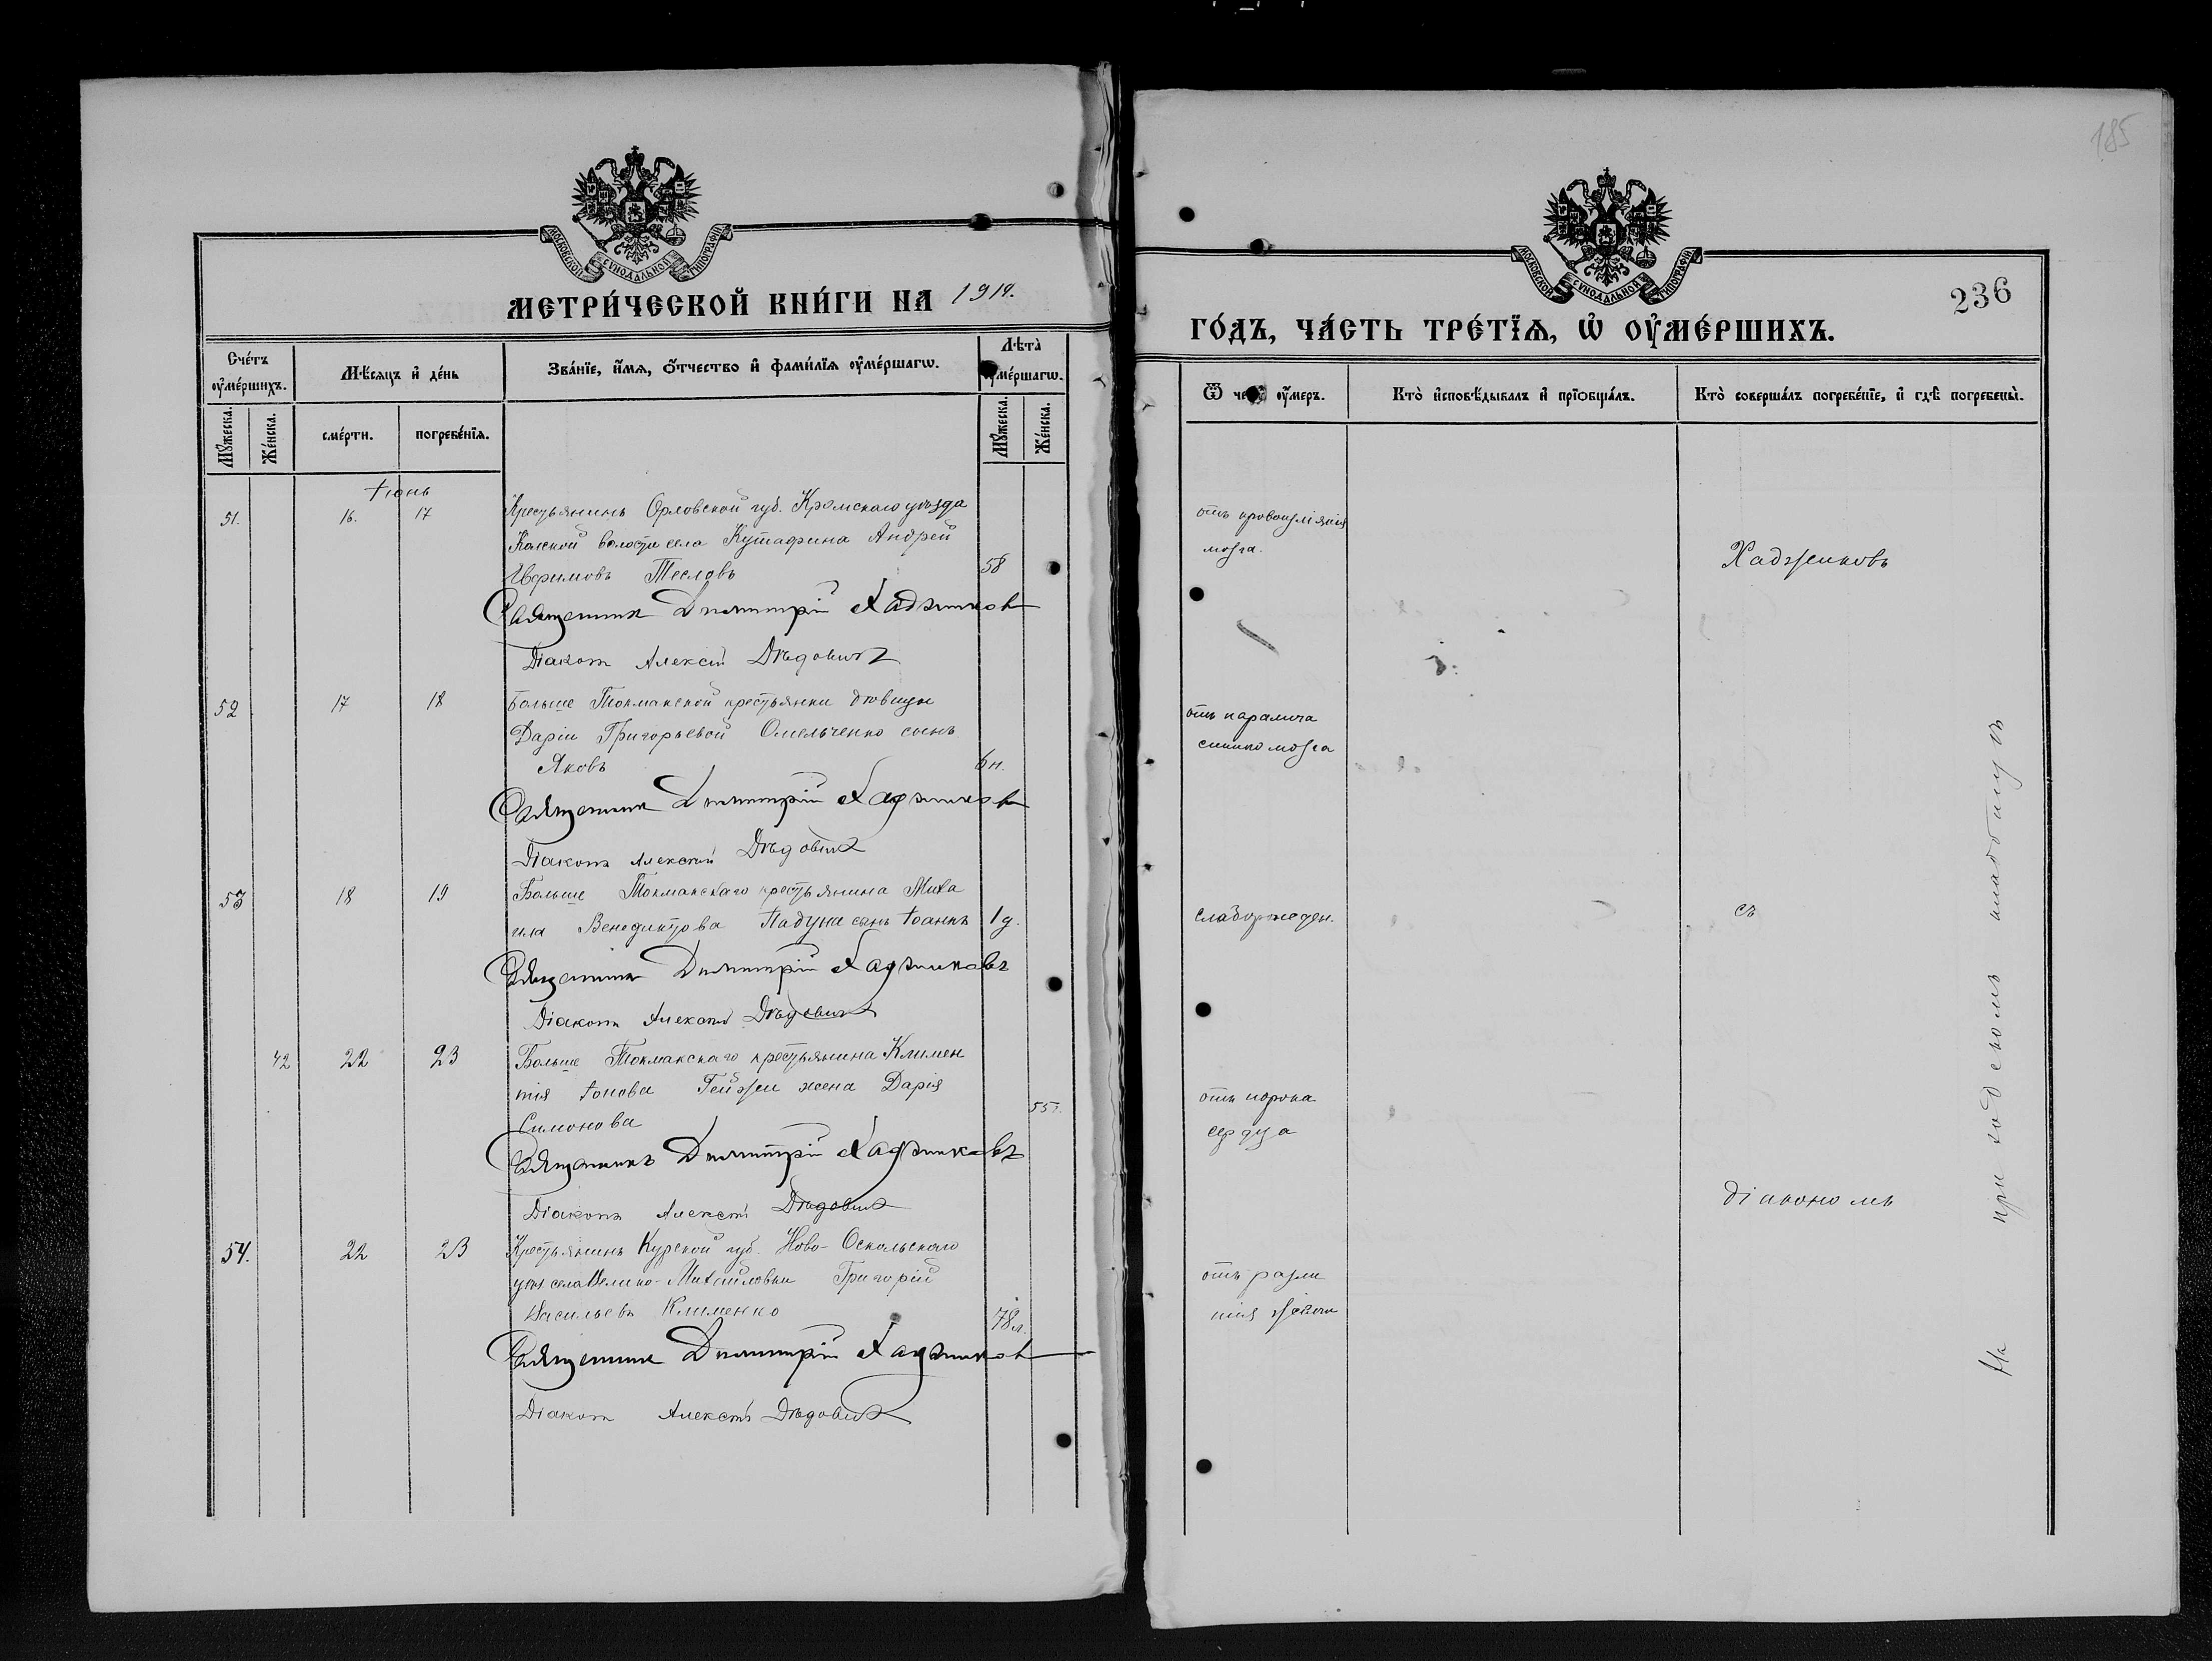 185
МОСКОВСКОЙ СѴНОДАЛЬНОЙ ТИПОГРАФІИ
МЕТРИ́ЧЕСКОЙ КНИ́ГИ НА 1914.
Сче́тъ ᲂу҆ме́ршихъ.
Мѣ́сяцъ и҆ де́нь
Зва́нїе, и҆́мѧ, ѻ҆́тчество и҆ фами́лїѧ ᲂу҆ме́ршагѡ.
Лѣта̀ ᲂу҆ме́ршагѡ.
Мꙋ́жеска.
Же́нска.
сме́рти.
погребе́нїѧ.
Мꙋ́жеска.
Же́нска.
Іюнь
51. 16. 17 Крестьянинъ Орловской губ. Кромскаго уѣзда
волости села Кутафина Андрей
Ефимовъ Тесловъ 58
Священникъ Димитрій Хаджиковъ
Діаконъ Алексій Дѣдовичъ
52 17 18 Больше Токмакской крестьянки дѣвицы
Даріи Григорьевой Омельченко сынъ
Яковъ 6 н.
Священникъ Димитрій Хаджиковъ
Діаконъ Алексій Дѣдовичъ
53 18 19 Больше Токмакскаго крестьянина Миха
ила Венедиктова Падуна сынъ Іоаннъ 1 д.
Священникъ Димитрій Хаджиковъ
Діаконъ Алексій Дѣдовичъ
42 22 23 Больше Токмакскаго крестьянина Климен
тія Іонова жена Дарія
Симонова 55
Священникъ Димитрій Хаджиковъ
Діаконъ Алексій Дѣдовичъ
54. 22 23 Крестьянинъ Курской губ. Ново-Оскольскаго
села Велико-Михайловки Григорій
Васильевъ Клименко 78 л.
Священникъ Димитрій Хаджиковъ
Діаконъ Алексій Дѣдовичъ
МОСКОВСКОЙ СѴНОДАЛЬНОЙ ТИПОГРАФІИ
236
ГО́ДЪ, ЧА́СТЬ ТРЕ́ТЇѦ, Ѡ҆ ОУ҆МЕ́РШИХЪ.
Ѿ чегѡ̀ ᲂу҆́меръ.
Кто̀ и҆сповѣ́дывалъ и҆ прїѡбща́лъ.
Кто̀ соверша́лъ погребе́нїе, и҆ гдѣ̀ погребены̀.
отъ кровоизліянія
мозга.
Хаджиковъ
отъ паралича
мозга
слаборожден.
съ
отъ порока
сердца
діакономъ
отъ
На приходскомъ кладбищѣ